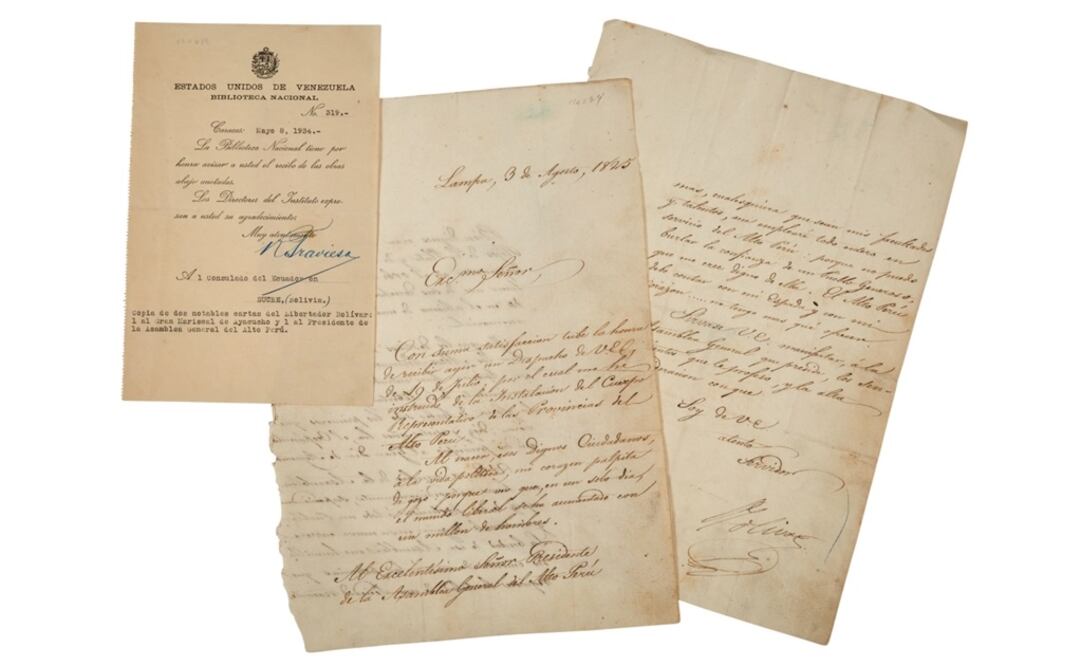 ESTADOS UNIDOS DE VENEZUELA
BIBLIOTECA NACIONAL
No. 319.-
Caracas: Mayo 8, 1934.-
La Biblioteca Nacional tiene por
honra avisar a usted el recibo de las obras
abajo anotadas.
Los Directores del Instituto expre-
san a usted su agradecimiento.
Muy atentamente
Al Consulado del Ecuador en
SUCRE, (Bolivia).
Copia de dos notables cartas del Libertador Bolívar:
1 al Gran Mariscal de Ayacucho y 1 al Presidente de
la Asamblea General del Alto Perú.
Lampa, 3 de Agosto, 1825
Exc.mo Señor
Con suma satisfaccion tube la honra
de recibir ayer un Despacho de V.E.
de 19 de Julio, por el cual me he
instruido de la Instalacion del Cuerpo
Representativo de las Provincias del
Alto Perú.
Al nacer, esos Dignos Ciudadanos,
a la vida politica, mi corazon palpita
de gozo: porque veo que, en un solo dia,
el mundo liberal se ha aumentado con
un millon de hombres.
Al Excelentísimo Señor Presidente
de la Asamblea General del Alto Perú
mas, cualesquiera que sean mis facultades
y talentos, me emplearé todo entero en
servicio del Alto Perú: porque no puedo
burlar la confianza de un Pueblo Generoso,
que me cree digno de ella. El Alto Perú
debe contar con mi Espada, y con mi
corazon.... no tengo mas que ofrecer.
Sirvase V.E. manifestar, á la
Asamblea General que preside, los Sen-
timientos que le profeso, y la alta
consideracion con que
Soy de V.E.
atento
Servidor
Bolivar